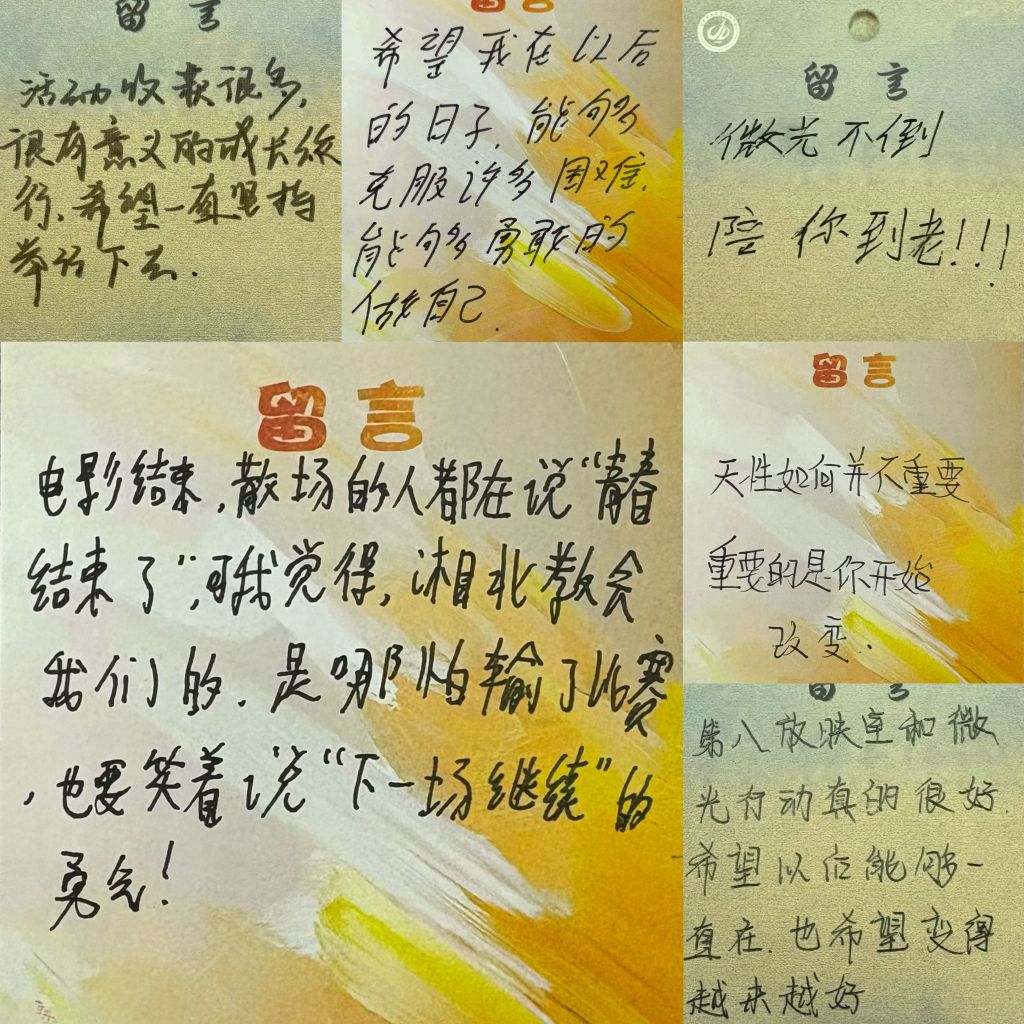 留言
活动收获很多,
很有意义的成长旅
行、希望一直坚持
举行下去.
留言
希望我在以后
的日子,能够
克服许多困难.
能够勇敢的
做自己.
留言
微光不倒
陪你到老!!!
留言
电影结束,散场的人都在说“青春
结束了”,可我觉得,湘北教会
我们的.是哪怕输了比赛
,也要笑着说“下一场继续”的
勇气!
留言
天性如何并不重要
重要的是你开始
改变.
留言
第八放映室和微
光行动真的很好.
希望以后能够一
直在.也希望变得
越来越好